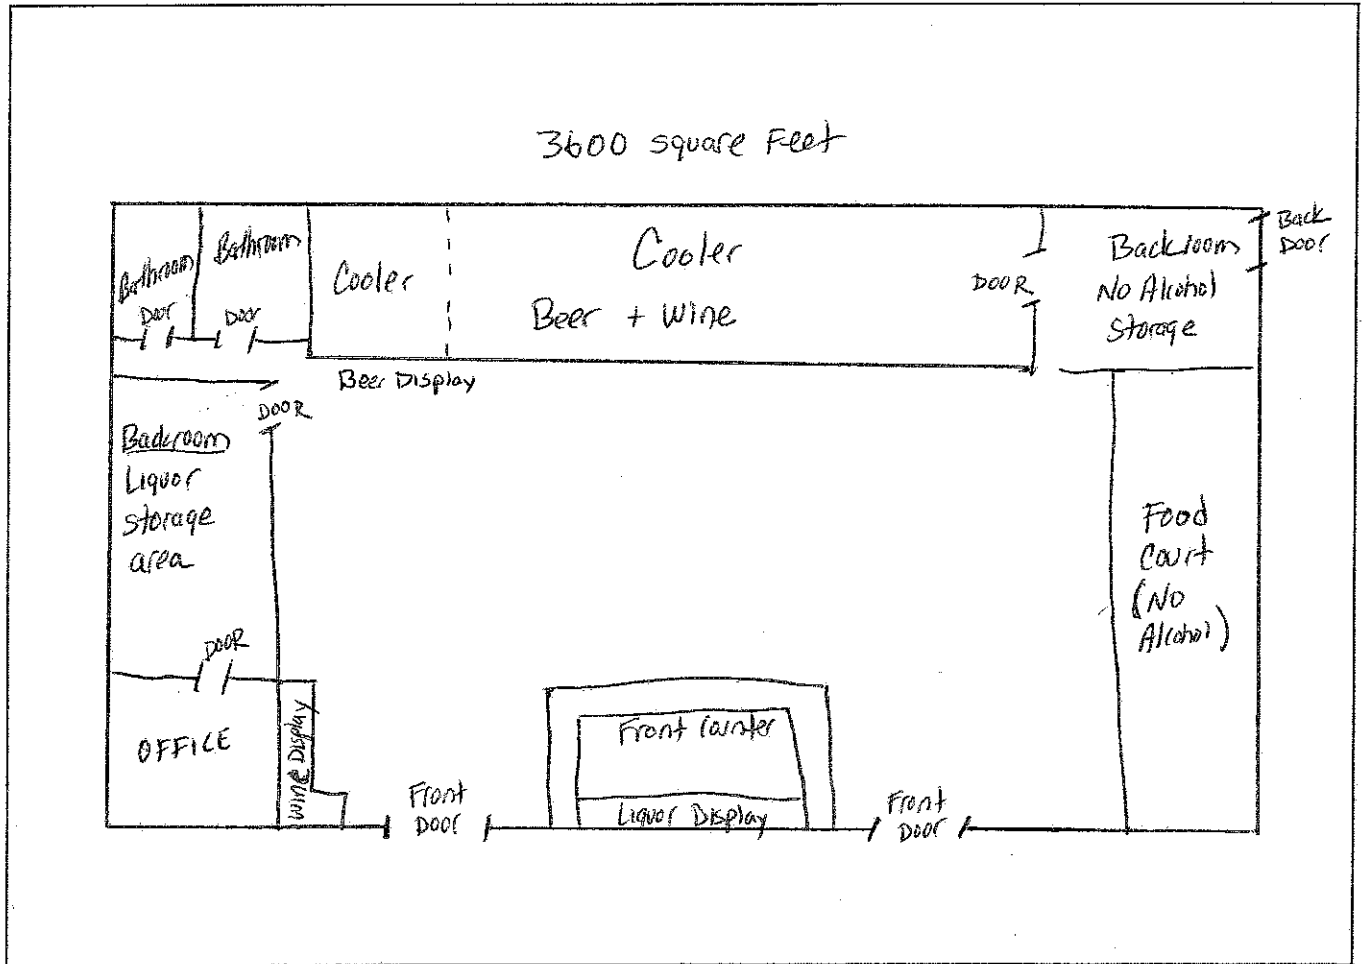 3600 square Feet
Bathroom
Door
Bathroom
Door
Cooler
Cooler
Beer + Wine
DOOR
Backroom
No Alcohol
Storage
Back
DOOR
Beer Display
DOOR
Backroom
Liquor
storage
area
DOOR
OFFICE
WINE Display
Front
DOOR
Front Counter
Liquor Display
Front
DOOR
Food
Court
(No
Alcohol)